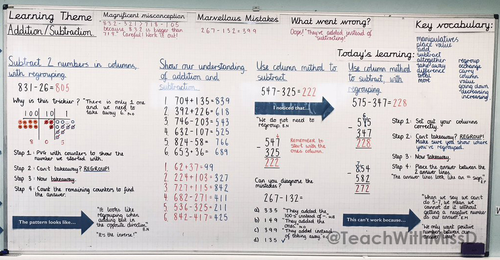 Learning Theme
Addition/Subtraction
Magnificent misconception
Marvellous Mistakes
267-132=399
What went wrong?
Oops! They've added instead of
subtracting!
Key vocabulary:
manipulatives
place value
add
subtract
altogether
take away
difference
total
more
regroup
exchange
carry
column
value
going down
decreasing
increasing
Today's learning:
Subtract 2 numbers in columns,
with regrouping.
831-26=805
Why is this trickier?
"There is only 1 one
and we need to
take away 6."
100 10 1
8 0 5
Step 1: Make with counters to show the
number we started with.
Step 2: Can't takeaway? REGROUP!
Step 3: Now takeaway
Step 4: Count the remaining counters to find
the answer.
The pattern looks like...
"It looks like
regrouping when
adding but in
the opposite direction"
"It's the inverse!"
Show our understanding
of addition and
subtraction
1 704+135=839
2 392+226=618
3 746-203=543
4 632-107=525
5 824-58=766
6 653+36=689
1 62+37=99
2 224+103=327
3 727+115=842
4 682-271=411
5 536-325=211
6 842-417=425
Use column method to
subtract
547-325=222
I noticed that...
"We do not need to
regroup"
547
325
222
Remember to
start with the
ones column.
Can you diagnose the
mistakes?
267-132=
a) 335 "They added the
100s instead of -"
b) 149 "They added the
ones"
c) 399 "They added
d) 135 ✓ instead of taking away"
Use column method
to subtract, with
regrouping.
575-347=228
575
347
228
854
582
272
Step 1: Set out your columns
correctly.
Step 2: Can't takeaway? REGROUP!
Make sure you show where
you've regrouped.
Step 3: Now takeaway
Step 4: Place the answer between the
2 answer lines.
This can't work because...
"When we say we can't
do 5-7, we mean we
cannot do it without
getting a negative number
"We only want positive
numbers
@TeachWithMissD